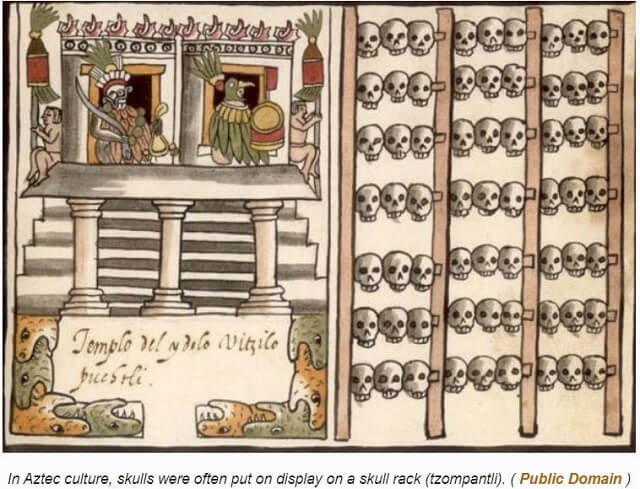 Templo del ydolo Vitzilo
puchtli.
In Aztec culture, skulls were often put on display on a skull rack (tzompantli). ( Public Domain )